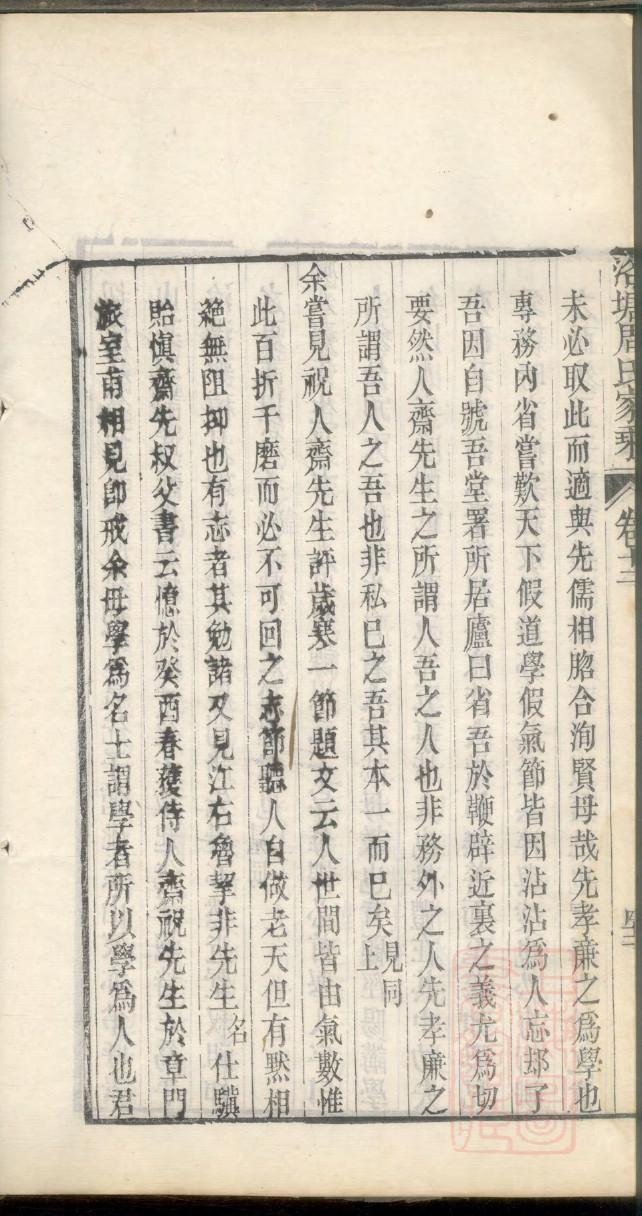 洛塘周氏家乘 卷十二
未必取此而適與先儒相脗合洵賢母哉先孝廉之爲學也
專務內省嘗歎天下假道學假氣節皆因沾沾爲人忘却了
吾因自號吾堂署所居廬曰省吾於鞭辟近裏之義尤爲切
要然人齋先生之所謂人吾之人也非務外之人先孝廉之
所謂吾人之吾也非私已之吾其本一而已矣見同上
余嘗見祝人齋先生評歲寒一節題文云人世間皆由氣數惟
此百折千磨而必不可回之志節聽人自做老天但有黙相
絕無阻抑也有志者其勉諸又見江右魯挈非先生名仕驥
貽愼齋先叔父書云憶於癸酉春獲侍人齋祝先生於章門
旅室甫相見卽戒余毋學爲名士謂學者所以學爲人也君